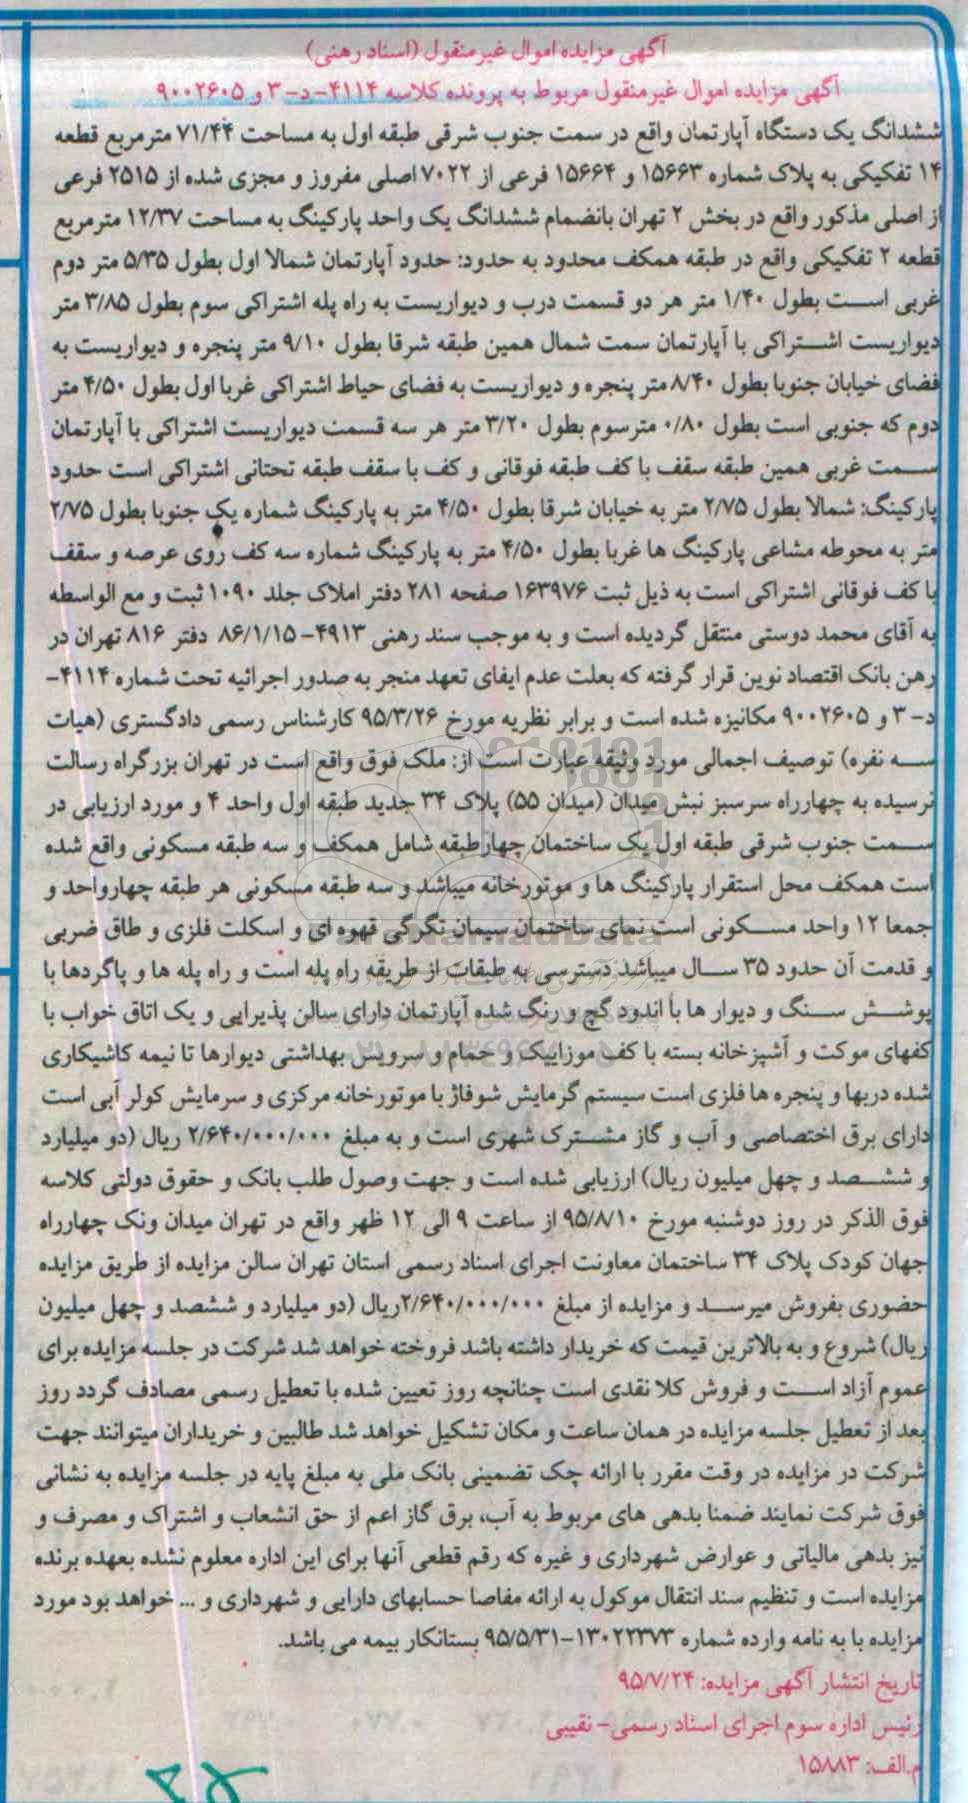 آگهی مزایده اموال غیرمنقول (اسناد رهنی)
آگهی مزایده اموال غیرمنقول مربوط به پرونده کلاسه ۴۱۱۴-د-۳ و ۹۰۰۲۶۰۵
ششدانگ یک دستگاه آپارتمان واقع در سمت جنوب شرقی طبقه اول به مساحت ۷۱/۴۴ مترمربع قطعه
۱۴ تفکیکی به پلاک شماره ۱۵۶۶۳ و ۱۵۶۶۴ فرعی از ۷۰۲۲ اصلی مفروز و مجزی شده از ۲۵۱۵ فرعی
از اصلی مذکور واقع در بخش ۲ تهران بانضمام ششدانگ یک واحد پارکینگ به مساحت ۱۲/۳۷ مترمربع
قطعه ۲ تفکیکی واقع در طبقه همکف محدود به حدود: حدود آپارتمان شمالا اول بطول ۵/۳۵ متر دوم
غربی است بطول ۱/۴۰ متر هر دو قسمت درب و دیواریست به راه پله اشتراکی سوم بطول ۳/۸۵ متر
دیواریست اشتراکی با آپارتمان سمت شمال همین طبقه شرقا بطول ۹/۱۰ متر پنجره و دیواریست به
فضای خیابان جنوبا بطول ۸/۴۰ متر پنجره و دیواریست به فضای حیاط اشتراکی غربا اول بطول ۴/۵۰ متر
دوم که جنوبی است بطول ۰/۸۰ مترسوم بطول ۳/۲۰ متر هر سه قسمت دیواریست اشتراکی با آپارتمان
سمت غربی همین طبقه سقف با کف طبقه فوقانی و کف با سقف طبقه تحتانی اشتراکی است حدود
پارکینگ: شمالا بطول ۲/۷۵ متر به خیابان شرقا بطول ۴/۵۰ متر به پارکینگ شماره یک جنوبا بطول ۲/۷۵
متر به محوطه مشاعی پارکینگ ها غربا بطول ۴/۵۰ متر به پارکینگ شماره سه کف روی عرصه و سقف
با کف فوقانی اشتراکی است به ذیل ثبت ۱۶۳۹۷۶ صفحه ۲۸۱ دفتر املاک جلد ۱۰۹۰ ثبت و مع الواسطه
به آقای محمد دوستی منتقل گردیده است و به موجب سند رهنی ۴۹۱۳-۸۶/۱/۱۵ دفتر ۸۱۶ تهران در
رهن بانک اقتصاد نوین قرار گرفته که بعلت عدم ایفای تعهد منجر به صدور اجرائیه تحت شماره ۴۱۱۴-
د-۳ و ۹۰۰۲۶۰۵ مکانیزه شده است و برابر نظریه مورخ ۹۵/۳/۲۶ کارشناس رسمی دادگستری (هیات
سه نفره) توصیف اجمالی مورد وثیقه عبارت است از: ملک فوق واقع است در تهران بزرگراه رسالت
نرسیده به چهارراه سرسبز نبش میدان (میدان ۵۵) پلاک ۳۴ جدید طبقه اول واحد ۴ و مورد ارزیابی در
سمت جنوب شرقی طبقه اول یک ساختمان چهارطبقه شامل همکف و سه طبقه مسکونی واقع شده
است همکف محل استقرار پارکینگ ها و موتورخانه میباشد و سه طبقه مسکونی هر طبقه چهارواحد و
جمعا ۱۲ واحد مسکونی است نمای ساختمان سیمان تگرگی قهوه ای و اسکلت فلزی و طاق ضربی
و قدمت آن حدود ۳۵ سال میباشد دسترسی به طبقات از طریقه راه پله است و راه پله ها و پاگردها با
پوشش سنگ و دیوار ها با اندود گچ و رنگ شده آپارتمان دارای سالن پذیرایی و یک اتاق خواب با
کفهای موکت و آشپزخانه بسته با کف موزاییک و حمام و سرویس بهداشتی دیوارها تا نیمه کاشیکاری
شده دربها و پنجره ها فلزی است سیستم گرمایش شوفاژ با موتورخانه مرکزی و سرمایش کولر آبی است
دارای برق اختصاصی و آب و گاز مشترک شهری است و به مبلغ ۲/۶۴۰/۰۰۰/۰۰۰ ریال (دو میلیارد
و ششصد و چهل میلیون ریال) ارزیابی شده است و جهت وصول طلب بانک و حقوق دولتی کلاسه
فوق الذکر در روز دوشنبه مورخ ۹۵/۸/۱۰ از ساعت ۹ الی ۱۲ ظهر واقع در تهران میدان ونک چهارراه
جهان کودک پلاک ۳۴ ساختمان معاونت اجرای اسناد رسمی استان تهران سالن مزایده از طریق مزایده
حضوری بفروش میرسد و مزایده از مبلغ ۲/۶۴۰/۰۰۰/۰۰۰ریال (دو میلیارد و ششصد و چهل میلیون
ریال) شروع و به بالاترین قیمت که خریدار داشته باشد فروخته خواهد شد شرکت در جلسه مزایده برای
عموم آزاد است و فروش کلا نقدی است چنانچه روز تعیین شده با تعطیل رسمی مصادف گردد روز
بعد از تعطیل جلسه مزایده در همان ساعت و مکان تشکیل خواهد شد طالبین و خریداران میتوانند جهت
شرکت در مزایده در وقت مقرر با ارائه چک تضمینی بانک ملی به مبلغ پایه در جلسه مزایده به نشانی
فوق شرکت نمایند ضمنا بدهی های مربوط به آب، برق گاز اعم از حق انشعاب و اشتراک و مصرف و
نیز بدهی مالیاتی و عوارض شهرداری و غیره که رقم قطعی آنها برای این اداره معلوم نشده بعهده برنده
مزایده است و تنظیم سند انتقال موکول به ارائه مفاصا حسابهای دارایی و شهرداری و ... خواهد بود مورد
مزایده با به نامه وارده شماره ۱۳۰۲۲۳۷۳-۹۵/۵/۳۱ بستانکار بیمه می باشد.
تاریخ انتشار آگهی مزایده: ۹۵/۷/۲۴
رئیس اداره سوم اجرای اسناد رسمی- نقیبی
م.الف: ۱۵۸۸۳